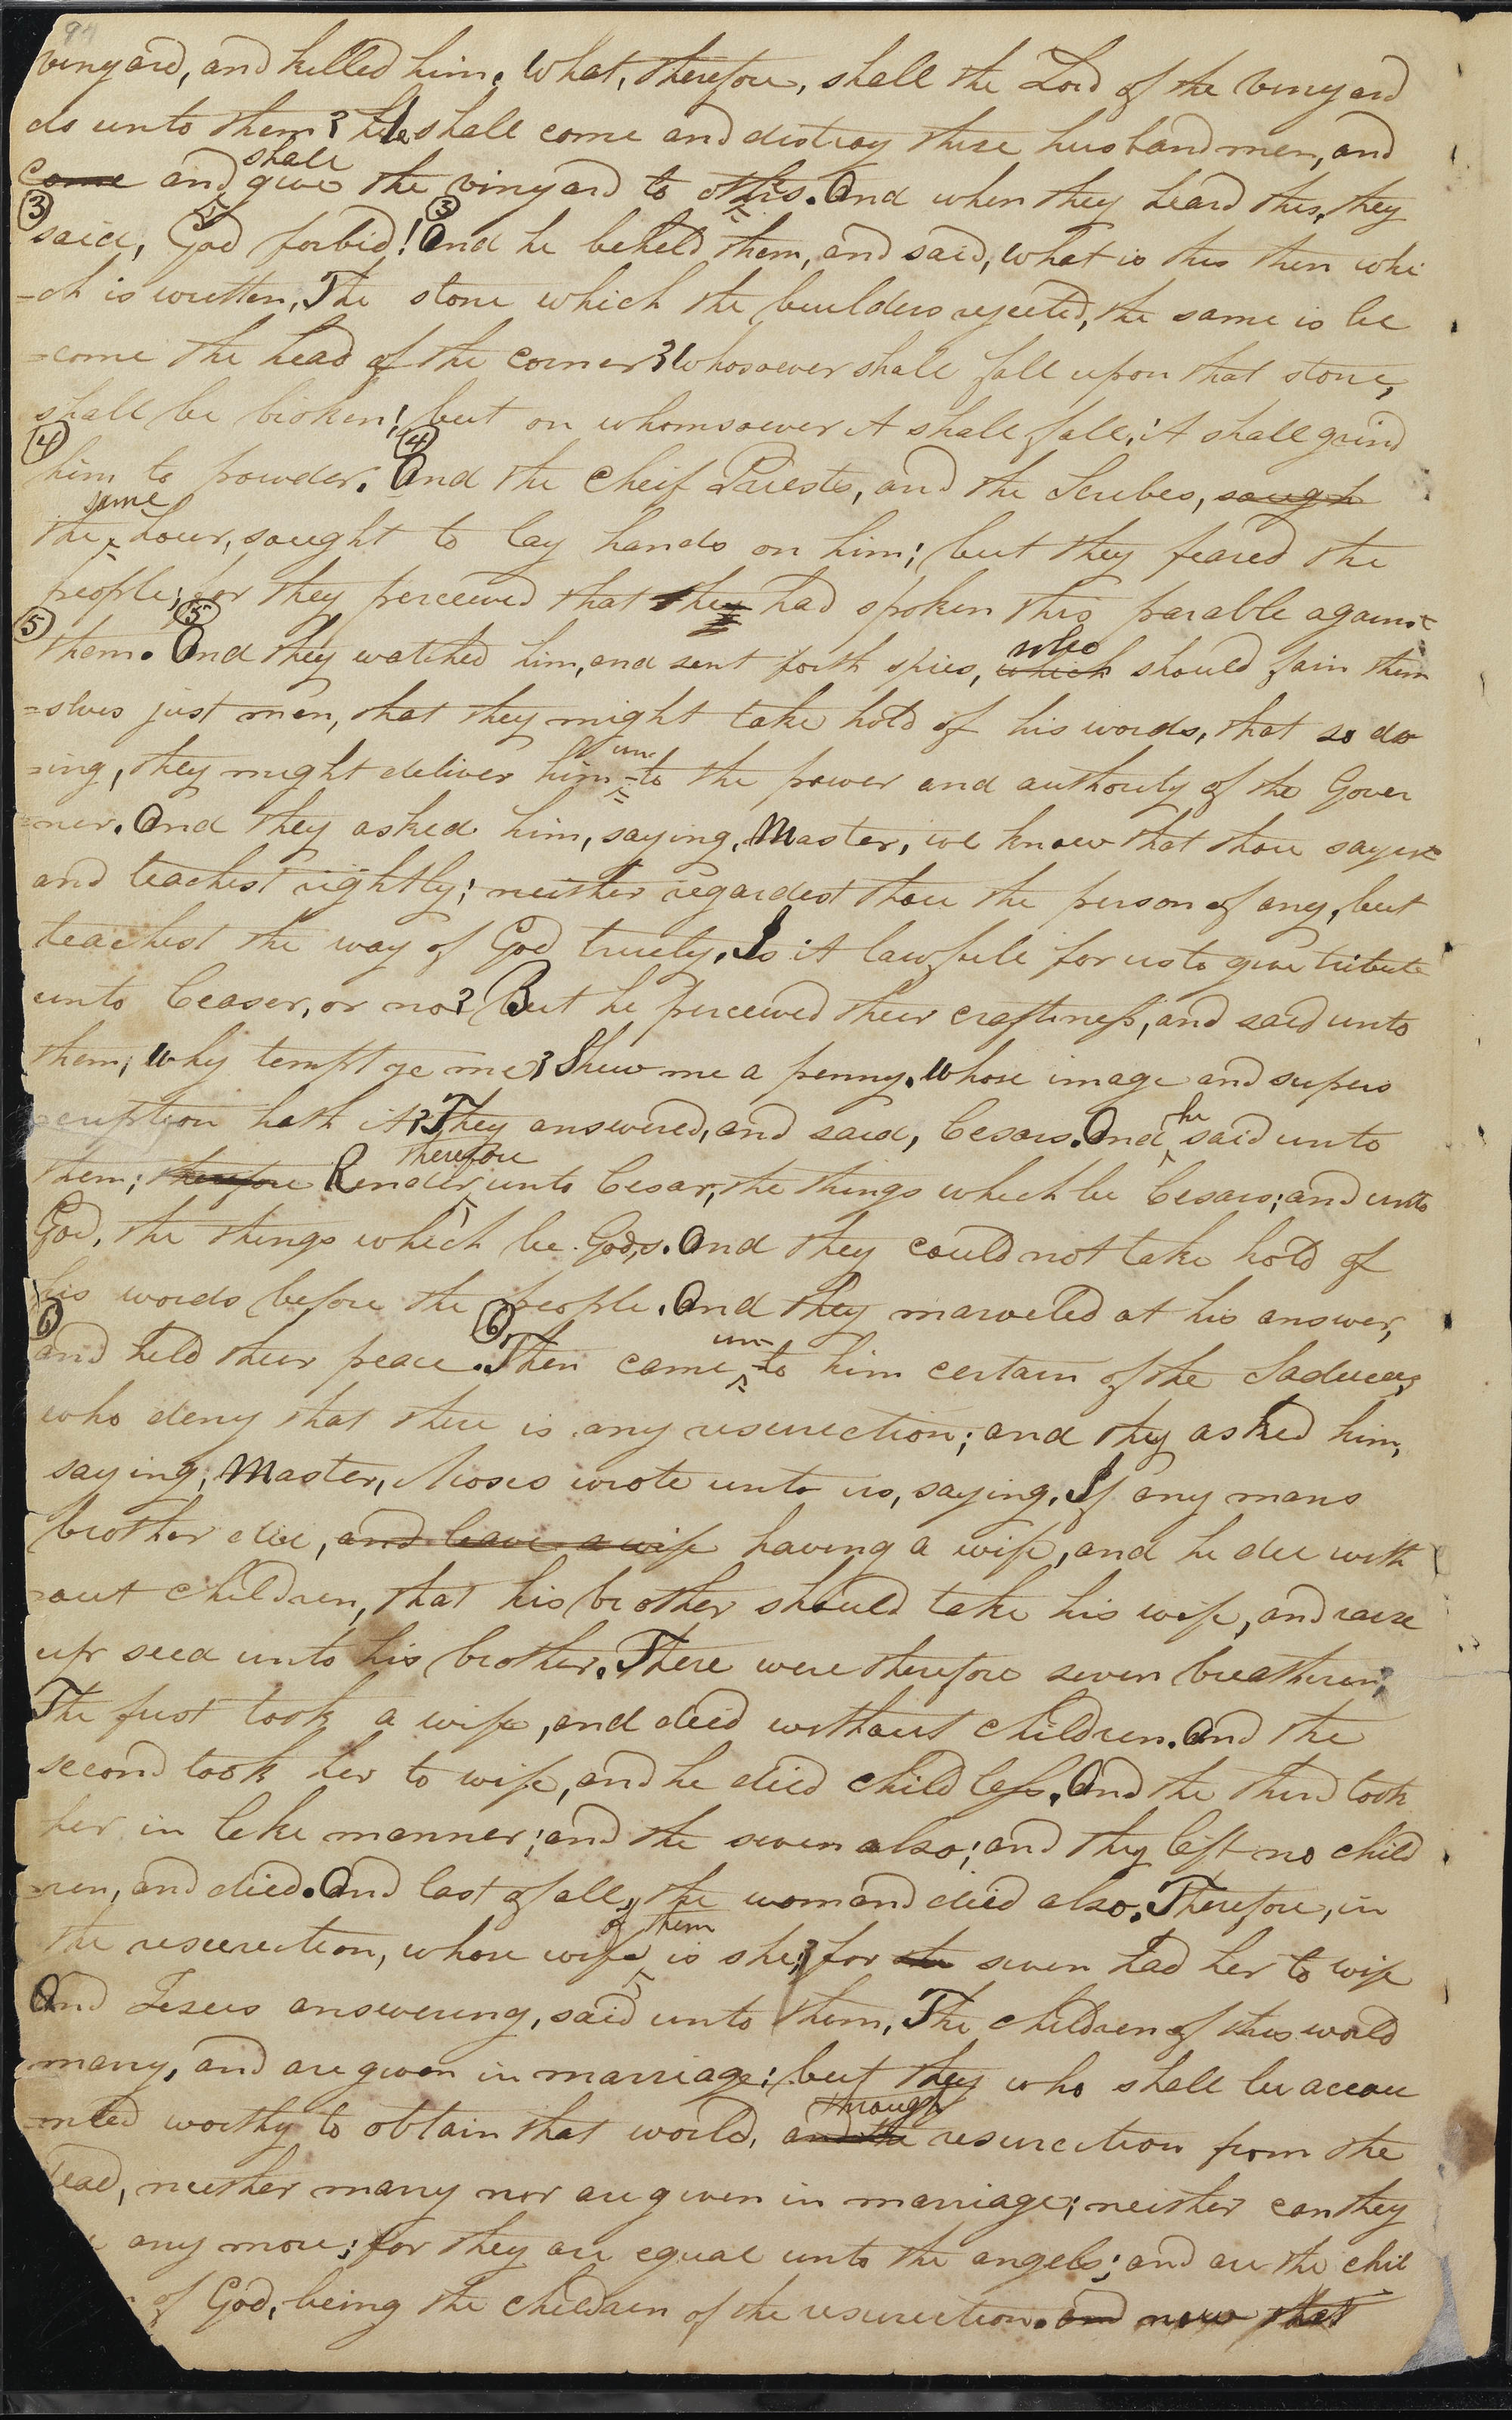 94
vinyard, and killed him. What, therefore, shall the Lord of the vinyard
do unto them? He shall come and distroy these husbandmen, and
shall
come and give the vinyard to othrs. And when they heard this, they
3 3
said, God forbid! And he beheld them, and said, What is this then whi
-ch is written, The stone which the builders rejected, the same is be
=come the head of the corner? Whosoever shall fall upon that stone,
shall be broken; but on whomsoever it shall fall, it shall grind
4 4
him to powder. And the Cheif Priests, and the Scribes, sough
same
the hour, sought to lay hands on him; but they feared the
people; for they perceived that he had spoken this parable against
5 5
them. And they watched him, and sent forth spies, which should fain them
who
=selves just men, that they might take hold of his words, that so do
un
=ing, they might deliver him -to the power and authority of the Gover
=ner. And they asked him, saying, Master, we know that thou sayest
and teachest rightly; neither regardest thou the person of any, but
teachest the way of God truely, Is it lawfull for us to give tribute
unto Ceaser, or no? But he perceived their craftiness, and said unto
them; Why tempt ye me? Shew me a penny. Whose image and supers
he
cription hath it? They answered, and said, Cesars. And said unto
therefore
them; therefore Render unto Cesar, the things which be Cesars; and unto
God, the things which be Gods. And they could not take hold of
his words before the people. And they marveled at his answer,
6 6 un-
and held their peace. Then came -to him certain of the Saducees,
who deny that there is any resurection; and they asked him,
saying, Master, Moses wrote unto us, saying, If any mans
brother die, and leave a wife having a wife, and he die with
=out children, that his brother should take his wife, and raise
up seed unto his brother. There were therefore seven breatheren;
The first took a wife, and died without children. And the
second took her to wife, and he died childless. And the third took
her in like manner; and the seven also; and they left no child
=ren, and died. And last of all, the woman died also. Therefore, in
of them
the resurection, whose wife is she? for she seven had her to wife
And Jesus answering, said unto them, The children of this world
marry, and are given in marriage; but they who shall be accou
through
=nted worthy to obtain that world, and the resurection from the
dead, neither marry nor are given in marriage; neither can they
any more; for they are equal unto the angels; and are the chil
of God, being the children of the resurection. and now that